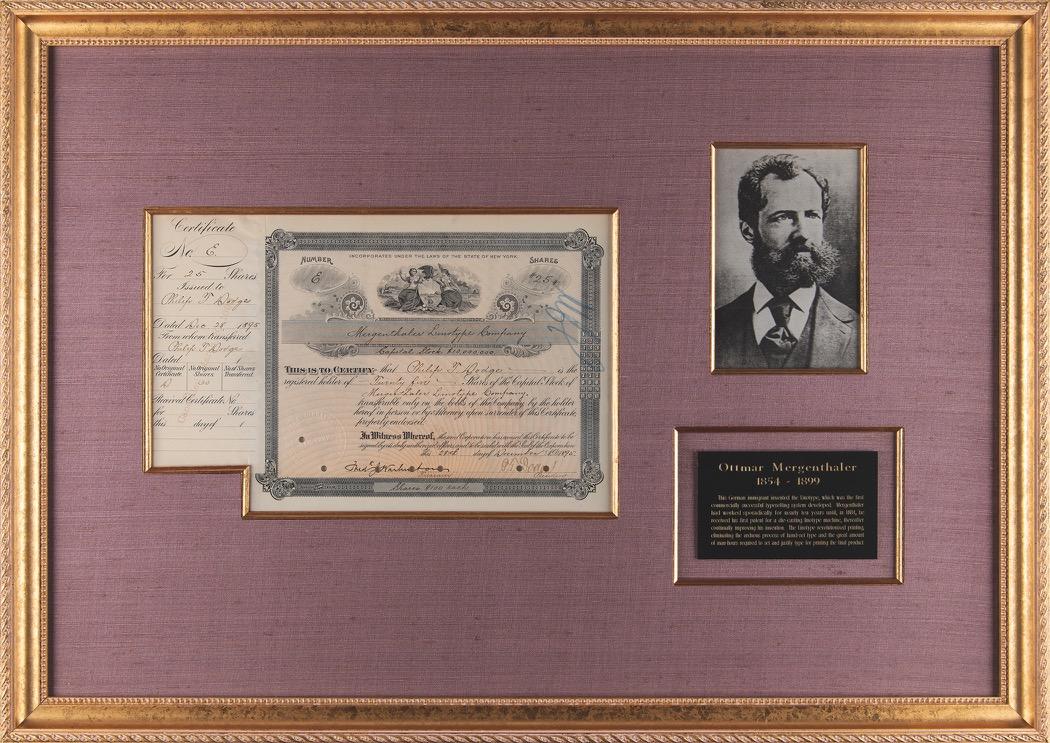 Certificate
No. E.
For 25 Shares
Issued to
Philip T Dodge
Dated Dec 28 1895
From whom transferred
Philip T Dodge
Dated 1
No Original Certificate. No Original Shares No. of Shares Transferred.
100
Received Certificate No.
for Shares
this day of 1
INCORPORATED UNDER THE LAWS OF THE STATE OF NEW YORK.
NUMBER SHARES
E 25
Mergenthaler Linotype Company
Capital Stock $10,000,000.
THIS IS TO CERTIFY that Philip T Dodge is the
registered holder of Twenty five Shares of the Capital Stock of
Mergenthaler Linotype Company,
transferable only on the books of the Company by the holder
hereof in person or by Attorney upon surrender of this Certificate
properly endorsed.
In Witness Whereof, the said Corporation has caused this Certificate to be
signed by its duly authorized officers and to be sealed with the Seal of the Corporation
this 28th day of December A.D. 1895
Shares $100 each
Ottmar Mergenthaler
1854 - 1899
This German immigrant invented the linotype, which was the first
commercially successful typesetting system developed. Mergenthaler
had worked sporadically for nearly ten years until, in 1884, he
received his first patent for a die-casting linotype machine, thereafter
continually improving his invention. The linotype revolutionized printing,
eliminating the arduous process of hand-set type and the great amount
of man-hours required to set and justify type for printing the final product